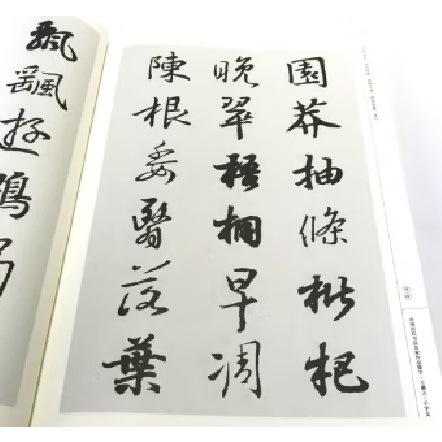 園莽抽條枇杷
晚翠梧桐早凋
陳根委翳落葉
飄颻遊鵾